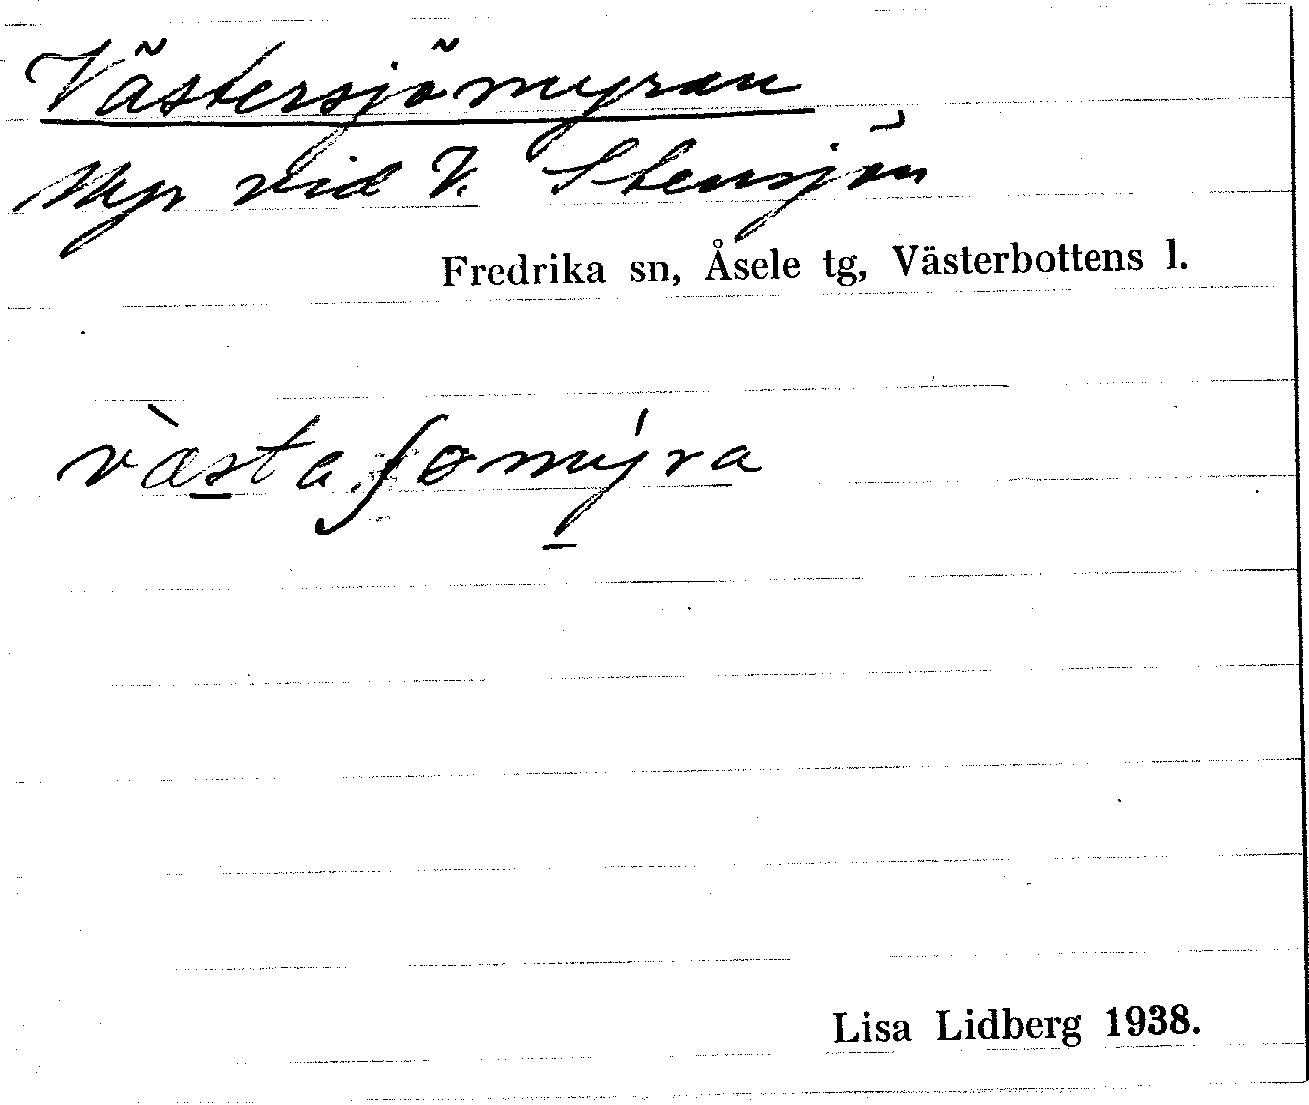 Västersjömyran
Myr vid V. Stensjön
Fredrika sn, Åsele tg, Västerbottens l.
væ̀staʃomýra
Lisa Lidberg 1938.